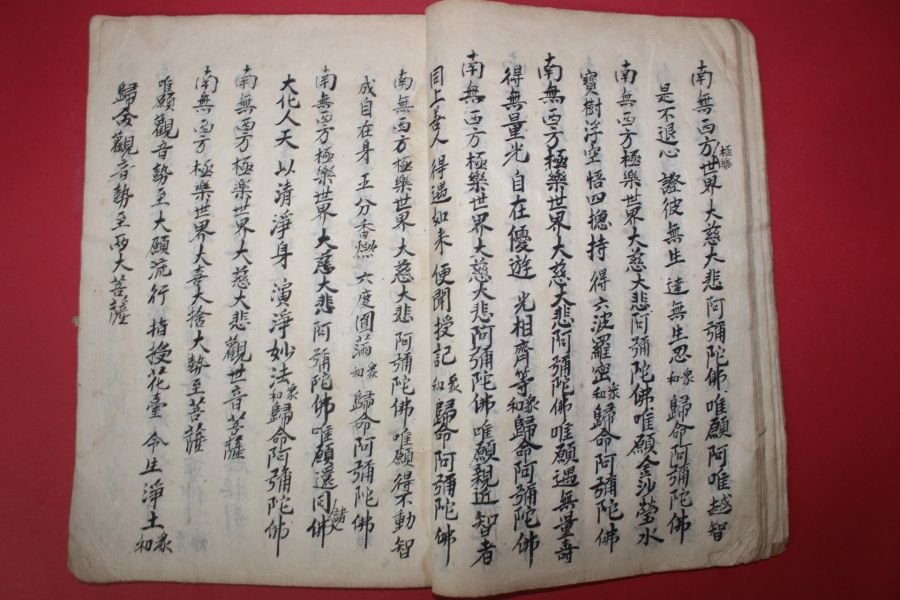 南無西方極樂世界大慈大悲阿彌陀佛唯願阿唯越智
是不退心證彼無生達無生忍衆和歸命阿彌陀佛
南無西方極樂世界大慈大悲阿彌陀佛唯願金沙瑩水
寶樹浮空悟四揔持得六波羅密衆和歸命阿彌陀佛
南無西方極樂世界大慈大悲阿彌陀佛唯願遇無量壽
得無量光自在優遊光相齊等衆和歸命阿彌陀佛
南無西方極樂世界大慈大悲阿彌陀佛唯願親近智者
同上善人得遇如来便聞授記衆和歸命阿彌陀佛
南無西方極樂世界大慈大悲阿彌陀佛唯願得不動智
成自在身五分香燃六度圓滿衆和歸命阿彌陀佛
南無西方極樂世界大慈大悲阿彌陀佛唯願還同諸佛
大化人天以清淨身演淨妙法衆和歸命阿彌陀佛
南無西方極樂世界大慈大悲觀世音菩薩
南無西方極樂世界大喜大捨大勢至菩薩
唯願觀音勢至大願流行指授花臺令生淨土衆和
歸命觀音勢至两大菩薩